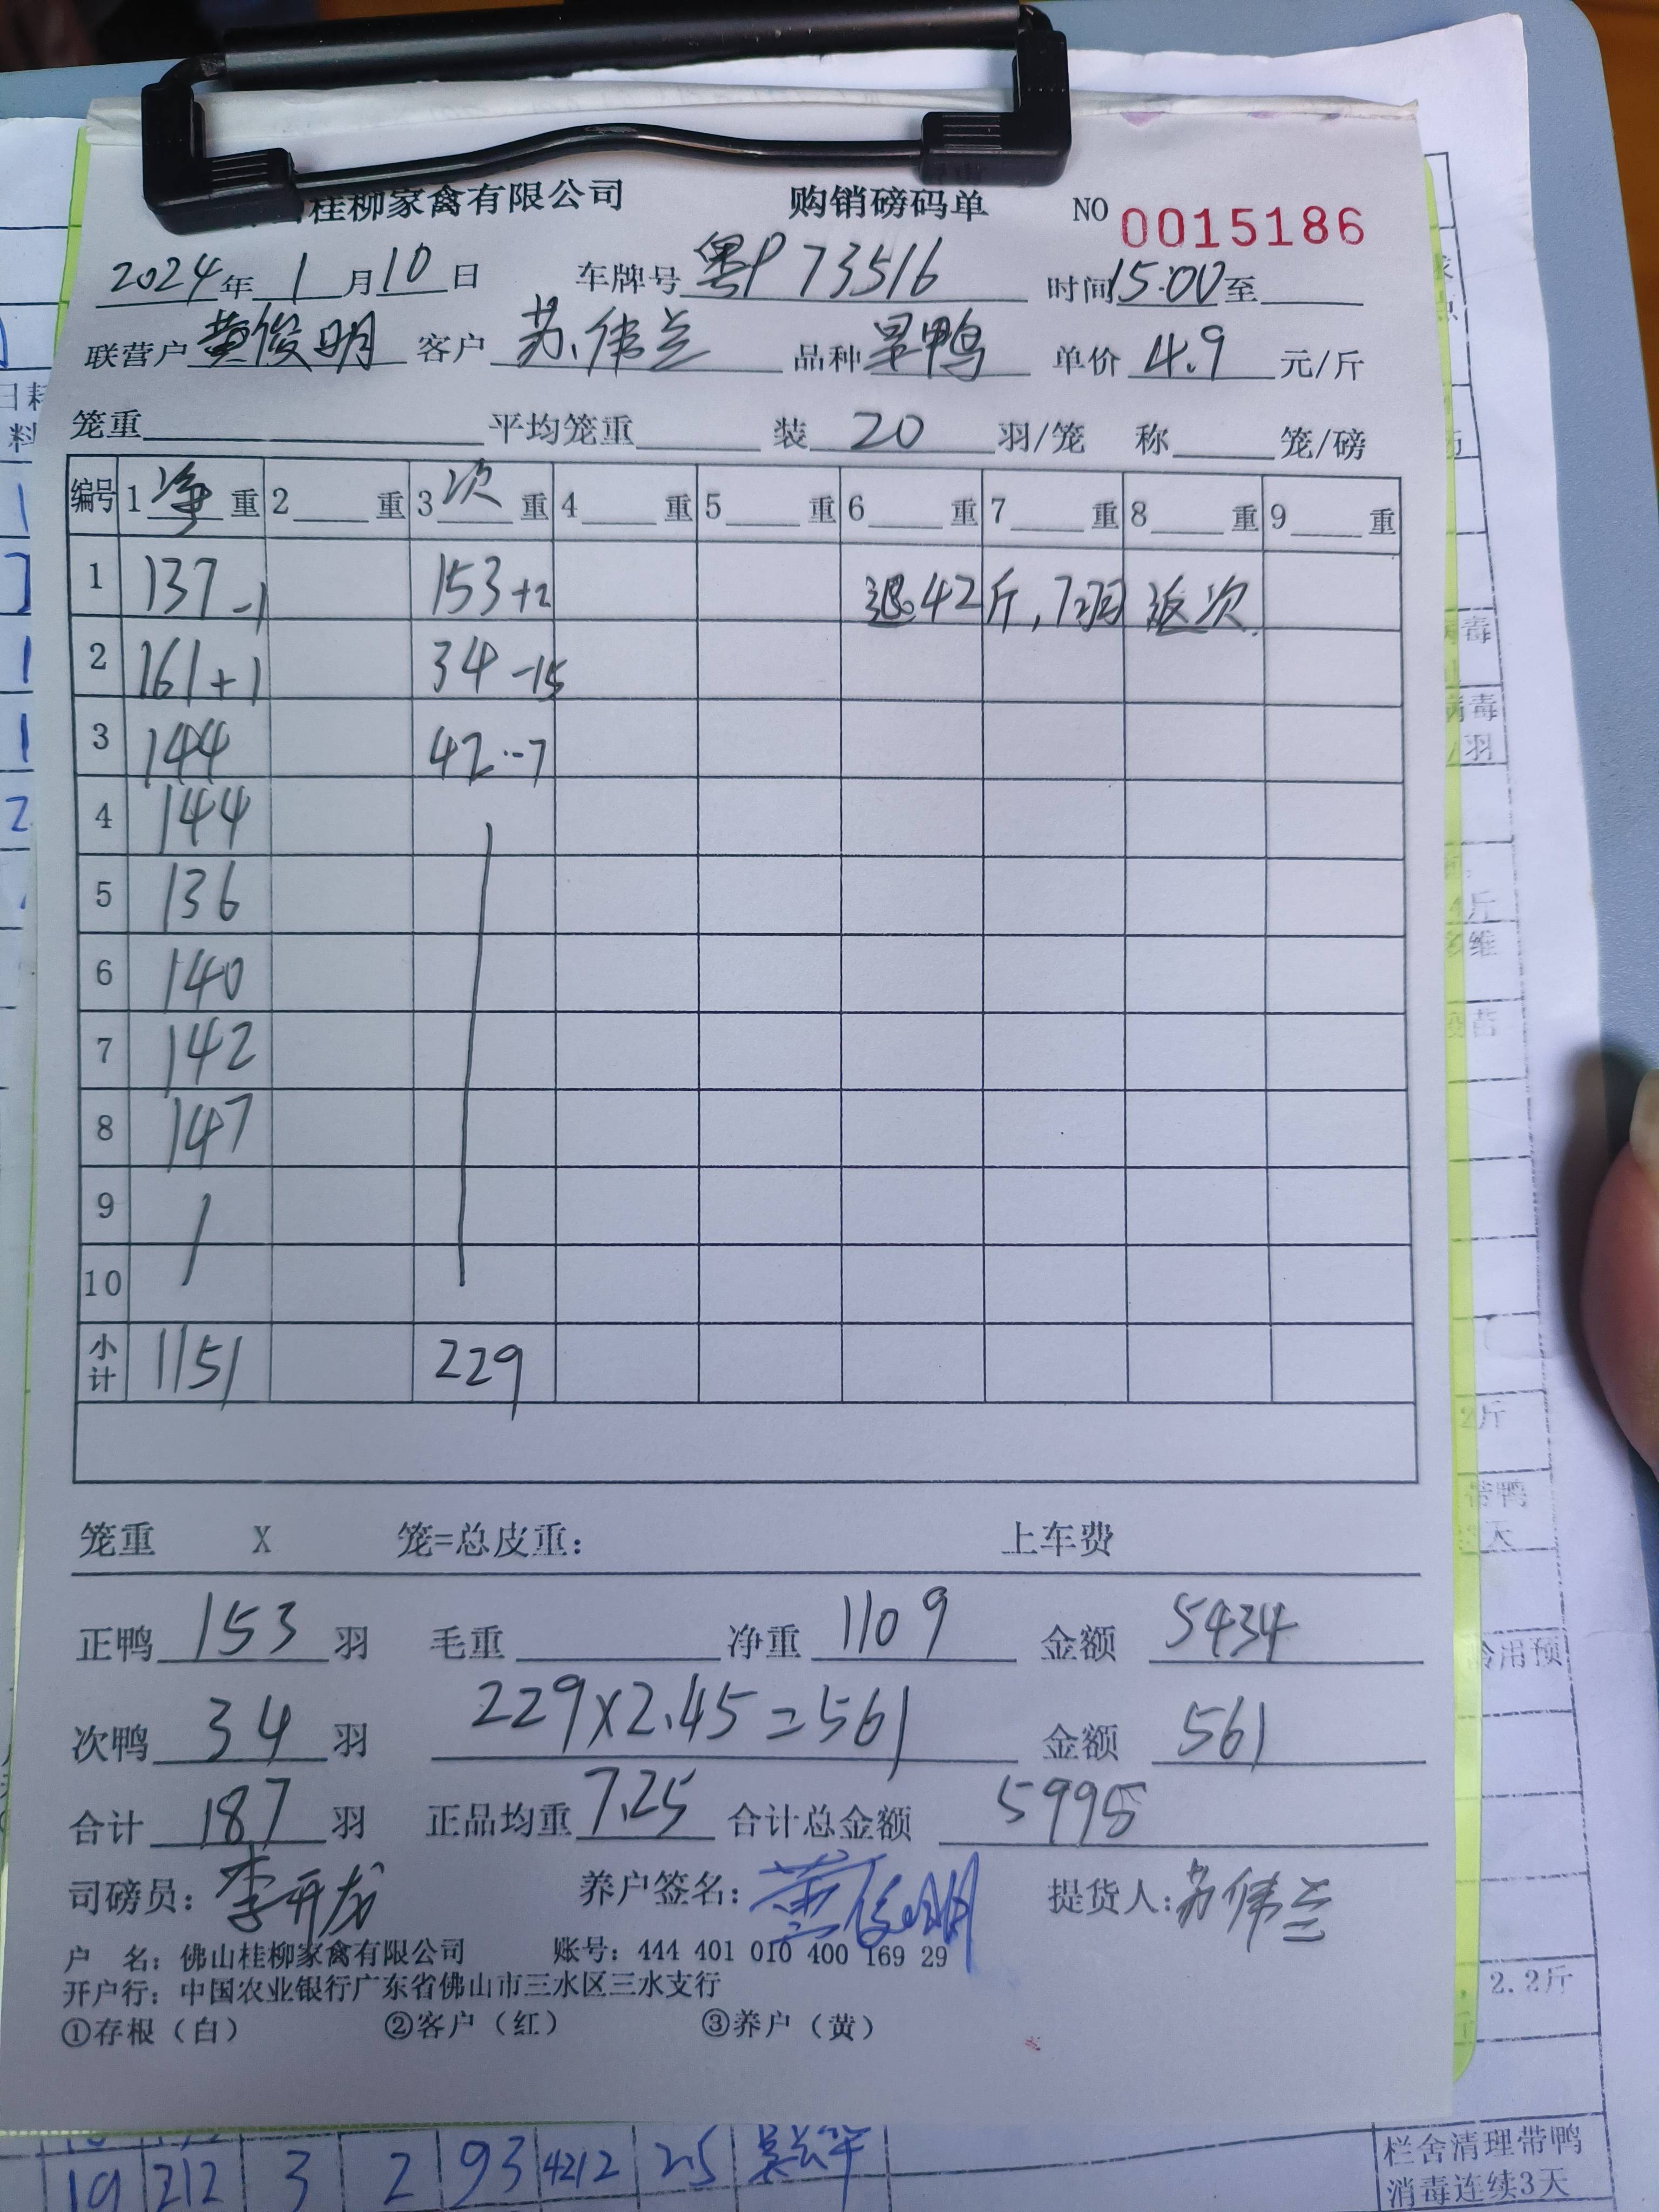 桂柳家禽有限公司 购销磅码单 NO 0015186
2024年 1月10日 车牌号 粤P 73516 时间15:00至
联营户 黄俊明 客户 苏伟兰 品种 旱鸭 单价 4.9 元/斤
笼重 平均笼重 装 20 羽/笼 称 笼/磅
编号 1 净 重 2 重 3 次 重 4 重 5 重 6 重 7 重 8 重 9 重
1 137 -1 153+2 退42斤,7羽 返次.
2 161+1 34 -15
3 144 42 -7
4 144
5 136
6 140
7 142
8 147
9
10
小计 1151 229
笼重 X 笼=总皮重: 上车费
正鸭 153 羽 毛重 净重 1109 金额 5434
次鸭 34 羽 229×2.45=561 金额 561
合计 187 羽 正品均重 7.25 合计总金额 5995
司磅员: 李开龙 养户签名: 黄俊明 提货人: 苏伟兰
户 名: 佛山桂柳家禽有限公司 账号: 444 401 010 400 169 29
开户行: 中国农业银行广东省佛山市三水区三水支行
①存根(白) ②客户(红) ③养户(黄)
2.2斤
19 212 3 2 93 4212 25
栏舍清理带鸭
消毒连续3天